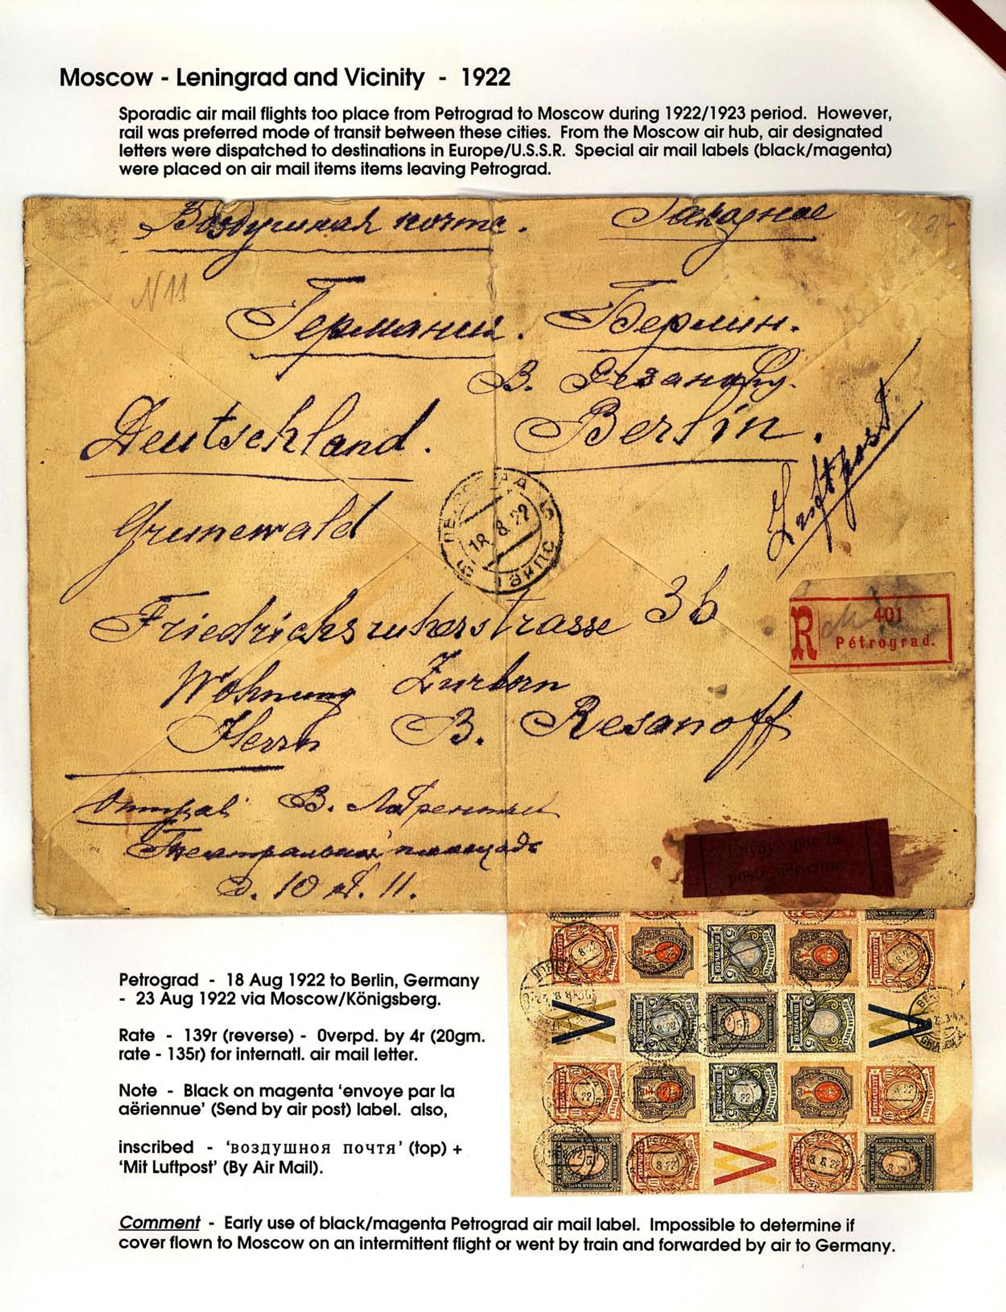 Moscow - Leningrad and Vicinity - 1922
Sporadic air mail flights too place from Petrograd to Moscow during 1922/1923 period. However,
rail was preferred mode of transit between these cities. From the Moscow air hub, air designated
letters were dispatched to destinations in Europe/U.S.S.R. Special air mail labels (black/magenta)
were placed on air mail items items leaving Petrograd.
Воздушная почта. Заказное
N 11
Германия. Берлин.
В. Резанову.
Deutschland. Berlin.
Luftpost
Grunewald
18.8.22
Friedrichsruherstrasse 3b
R 401
Pétrograd.
Wohnung Zurborn
Herrn B. Resanoff
В.
Театральная площадь
д. 10 кв. 11.
Envoyé par la
poste aérienne
Petrograd - 18 Aug 1922 to Berlin, Germany
- 23 Aug 1922 via Moscow/Königsberg.
Rate - 139r (reverse) - Overpd. by 4r (20gm.
rate - 135r) for internatl. air mail letter.
Note - Black on magenta 'envoye par la
aëriennue' (Send by air post) label. also,
inscribed - 'воздушноя почтя' (top) +
'Mit Luftpost' (By Air Mail).
Comment - Early use of black/magenta Petrograd air mail label. Impossible to determine if
cover flown to Moscow on an intermittent flight or went by train and forwarded by air to Germany.